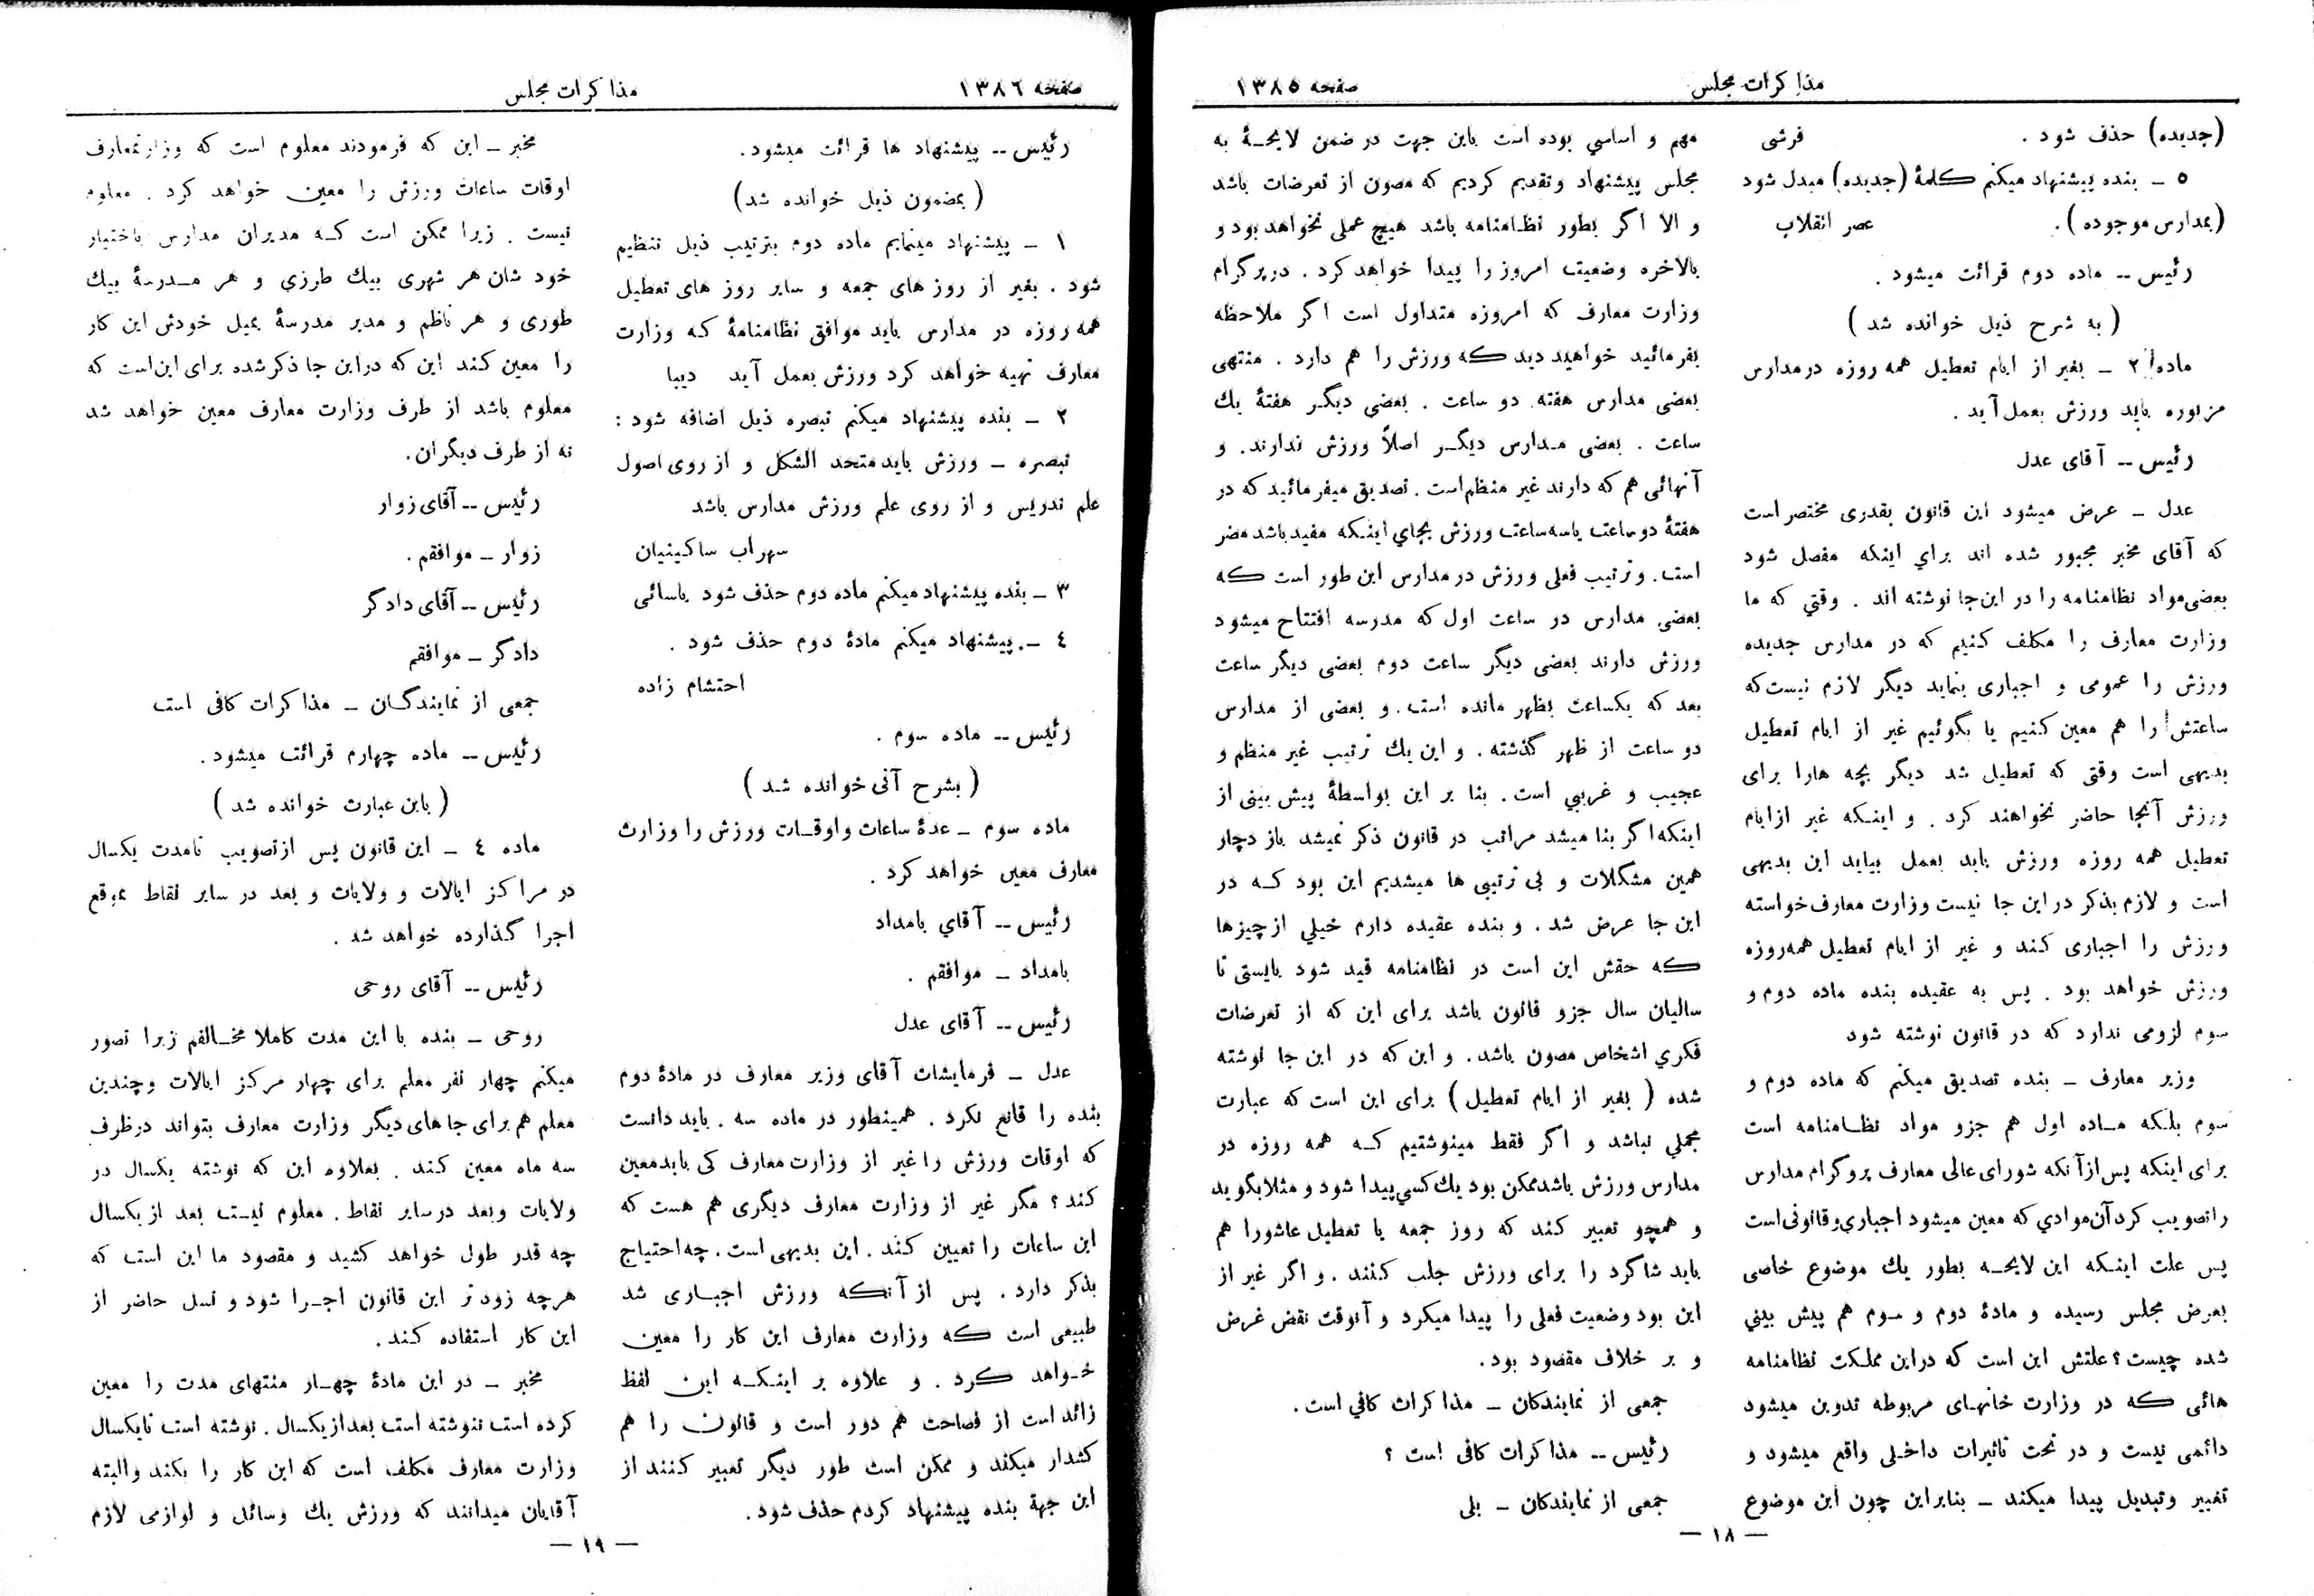 مذاکرات مجلس
صفحه ۱۳۸۵
(جدیده) حذف شود . فرشی
۵ ـ بنده پیشنهاد میکنم کلمهٔ (جدیده) مبدل شود
(بمدارس موجوده) . عصر انقلاب
رئیس -- ماده دوم قرائت میشود .
( به شرح ذیل خوانده شد )
ماده ۲ ـ بغیر از ایام تعطیل همه روزه در مدارس
مزبوره باید ورزش بعمل آید .
رئیس -- آقای عدل
عدل ـ عرض میشود این قانون بقدری مختصر است
که آقای مخبر مجبور شده اند برای اینکه مفصل شود
بعضی مواد نظامنامه را در این جا نوشته اند . وقتی که ما
وزارت معارف را مکلف کنیم که در مدارس جدیده
ورزش را عمومی و اجباری بنماید دیگر لازم نیست که
ساعتش را هم معین کنیم یا بگوئیم غیر از ایام تعطیل
بدیهی است وقتی که تعطیل شد دیگر بچه هارا برای
ورزش آنجا حاضر نخواهند کرد . و اینکه غیر از ایام
تعطیل همه روزه ورزش باید بعمل بیاید این بدیهی
است و لازم بذکر در این جا نیست وزارت معارف خواسته
ورزش را اجباری کند و غیر از ایام تعطیل همه روزه
ورزش خواهد بود . پس به عقیده بنده ماده دوم و
سوم لزومی ندارد که در قانون نوشته شود
وزیر معارف ـ بنده تصدیق میکنم که ماده دوم و
سوم بلکه ماده اول هم جزو مواد نظامنامه است
برای اینکه پس از آنکه شورای عالی معارف پروگرام مدارس
را تصویب کرد آن موادی که معین میشود اجباری و قانونی است
پس علت اینکه این لایحه بطور یك موضوع خاصی
بعرض مجلس رسیده و مادهٔ دوم و سوم هم پیش بینی
شده چیست ؟ علتش این است که در این مملکت نظامنامه
هائی که در وزارت خانهای مربوطه تدوین میشود
دائمی نیست و در تحت تاثیرات داخلی واقع میشود و
تغییر و تبدیل پیدا میکند ـ بنابراین چون این موضوع
مهم و اساسی بوده است باین جهت در ضمن لایحهٔ به
مجلس پیشنهاد و تقدیم کردیم که مصون از تعرضات باشد
و الا اگر بطور نظامنامه باشد هیچ عملی نخواهد بود و
بالاخره وضعیت امروز را پیدا خواهد کرد . در پرگرام
وزارت معارف که امروزه متداول است اگر ملاحظه
بفرمائید خواهید دید که ورزش را هم دارد . منتهی
بعضی مدارس هفته دو ساعت . بعضی دیگر هفتهٔ یك
ساعت . بعضی مدارس دیگر اصلاً ورزش ندارند . و
آنهائی هم که دارند غیر منظم است . تصدیق میفرمائید که در
هفتهٔ دو ساعت یا سه ساعت ورزش بجای اینکه مفید باشد مضر
است . و ترتیب فعلی ورزش در مدارس این طور است که
بعضی مدارس در ساعت اول که مدرسه افتتاح میشود
ورزش دارند بعضی دیگر ساعت دوم بعضی دیگر ساعت
بعد که یکساعت بظهر مانده است . و بعضی از مدارس
دو ساعت از ظهر گذشته . و این یك ترتیب غیر منظم و
عجیب و غریبی است . بنا بر این بواسطهٔ پیش بینی از
اینکه اگر بنا میشد مراتب در قانون ذکر نمیشد باز دچار
همین مشکلات و بی ترتیبی ها میشدیم این بود که در
این جا عرض شد . و بنده عقیده دارم خیلی از چیزها
که حقش این است در نظامنامه قید شود بایستی تا
سالیان سال جزو قانون باشد برای این که از تعرضات
فکری اشخاص مصون باشد . و این که در این جا نوشته
شده ( بغیر از ایام تعطیل ) برای این است که عبارت
مجملی نباشد و اگر فقط مینوشتیم که همه روزه در
مدارس ورزش باشد ممکن بود یك کسی پیدا شود و مثلا بگوید
و همچو تعبیر کند که روز جمعه یا تعطیل عاشورا هم
باید شاگرد را برای ورزش جلب کنند . و اگر غیر از
این بود وضعیت فعلی را پیدا میکرد و آنوقت نقض غرض
و بر خلاف مقصود بود.
جمعی از نمایندکان ـ مذاکرات کافی است .
رئیس -- مذاکرات کافی است ؟
جمعی از نمایندکان ـ بلی
— ۱۸ —
صفحه ۱۳۸۶
مذاکرات مجلس
رئیس -- پیشنهاد ها قرائت میشود.
( بمضمون ذیل خوانده شد)
۱ ـ پیشنهاد مینمایم ماده دوم بترتیب ذیل تنظیم
شود . بغیر از روز های جمعه و سایر روز های تعطیل
همه روزه در مدارس باید موافق نظامنامهٔ که وزارت
معارف تهیه خواهد کرد ورزش بعمل آید دیبا
۲ ـ بنده پیشنهاد میکنم تبصره ذیل اضافه شود :
تبصره ـ ورزش باید متحد الشکل و از روی اصول
علم تدریس و از روی علم ورزش مدارس باشد
سهراب ساکینیان
۳ ـ بنده پیشنهاد میکنم ماده دوم حذف شود یاسائی
۴ ـ . پیشنهاد میکنم مادهٔ دوم حذف شود .
احتشام زاده
رئیس -- ماده سوم .
( بشرح آتی خوانده شد )
ماده سوم ـ عدهٔ ساعات و اوقات ورزش را وزارت
معارف معین خواهد کرد .
رئیس -- آقای بامداد
بامداد ـ موافقم .
رئیس -- آقای عدل
عدل ـ فرمایشات آقای وزیر معارف در مادهٔ دوم
بنده را قانع نکرد . همینطور در ماده سه . باید دانست
که اوقات ورزش را غیر از وزارت معارف کی باید معین
کند ؟ مگر غیر از وزارت معارف دیگری هم هست که
این ساعات را تعیین کند . این بدیهی است . چه احتیاج
بذکر دارد . پس از آنکه ورزش اجباری شد
طبیعی است که وزارت معارف این کار را معین
خواهد کرد . و علاوه بر اینکه این لفظ
زائد است از فصاحت هم دور است و قانون را هم
کشدار میکند و ممکن است طور دیگر تعبیر کنند از
این جهة بنده پیشنهاد کردم حذف شود .
مخبر ـ این که فرمودند معلوم است که وزارتمعارف
اوقات ساعات ورزش را معین خواهد کرد . معلوم
نیست . زیرا ممکن است که مدیران مدارس باختیار
خود شان هر شهری بیك طرزی و هر مدرسهٔ بیك
طوری و هر ناظم و مدیر مدرسهٔ بمیل خودش این کار
را معین کند این که در این جا ذکر شده برای این است که
معلوم باشد از طرف وزارت معارف معین خواهد شد
نه از طرف دیگران.
رئیس -- آقای زوار
زوار ـ موافقم .
رئیس -- آقای دادگر
دادگر ـ موافقم
جمعی از نمایندگان ـ مذاکرات کافی است
رئیس -- ماده چهارم قرائت میشود .
( باین عبارت خوانده شد )
ماده ۴ ـ این قانون پس از تصویب تا مدت یکسال
در مراکز ایالات و ولایات و بعد در سایر نقاط بموقع
اجرا گذارده خواهد شد .
رئیس -- آقای روحی
روحی ـ بنده با این مدت کاملا مخالفم زیرا تصور
میکنم چهار نفر معلم برای چهار مرکز ایالات و چندین
معلم هم برای جاهای دیگر وزارت معارف بتواند در ظرف
سه ماه معین کند . بعلاوه این که نوشته یکسال در
ولایات و بعد در سایر نقاط . معلوم نیست بعد از یکسال
چه قدر طول خواهد کشید و مقصود ما این است که
هرچه زودتر این قانون اجرا شود و نسل حاضر از
این کار استفاده کند .
مخبر ـ در این مادهٔ چهار منتهای مدت را معین
کرده است ننوشته است بعد از یکسال . نوشته است تا یکسال
وزارت معارف مکلف است که این کار را بکند و البته
آقایان میدانند که ورزش یك وسائل و لوازمی لازم
— ۱۹ —